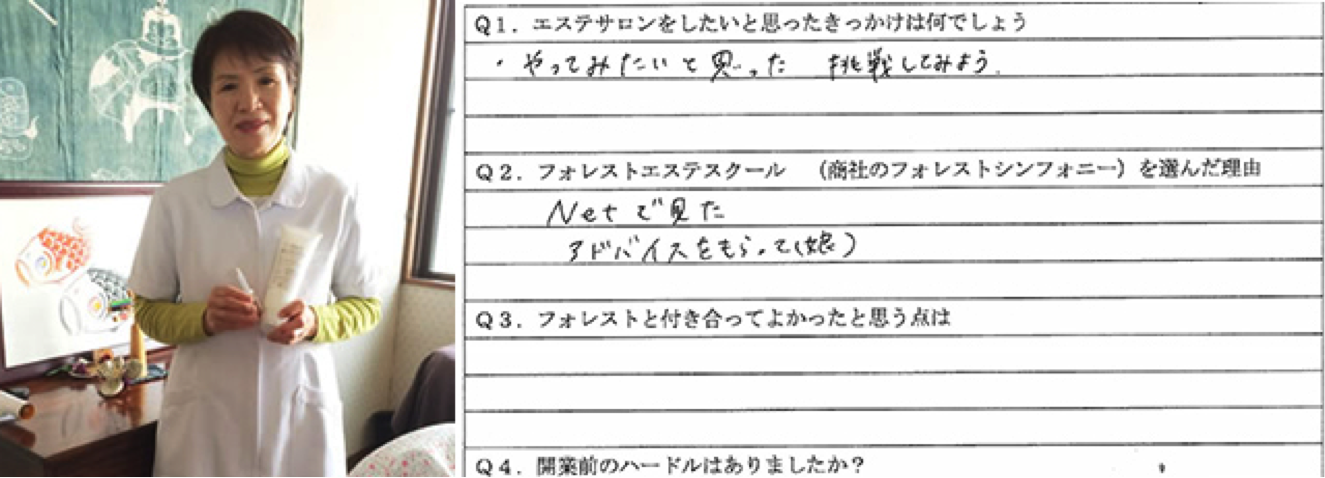 Q1．エステサロンをしたいと思ったきっかけは何でしょう
・やってみたいと思った 挑戦してみよう.
Q2．フォレストエステスクール （商社のフォレストシンフォニー）を選んだ理由
Netで見た
アドバイスをもらって（娘）
Q3．フォレストと付き合ってよかったと思う点は
Q4．開業前のハードルはありましたか？